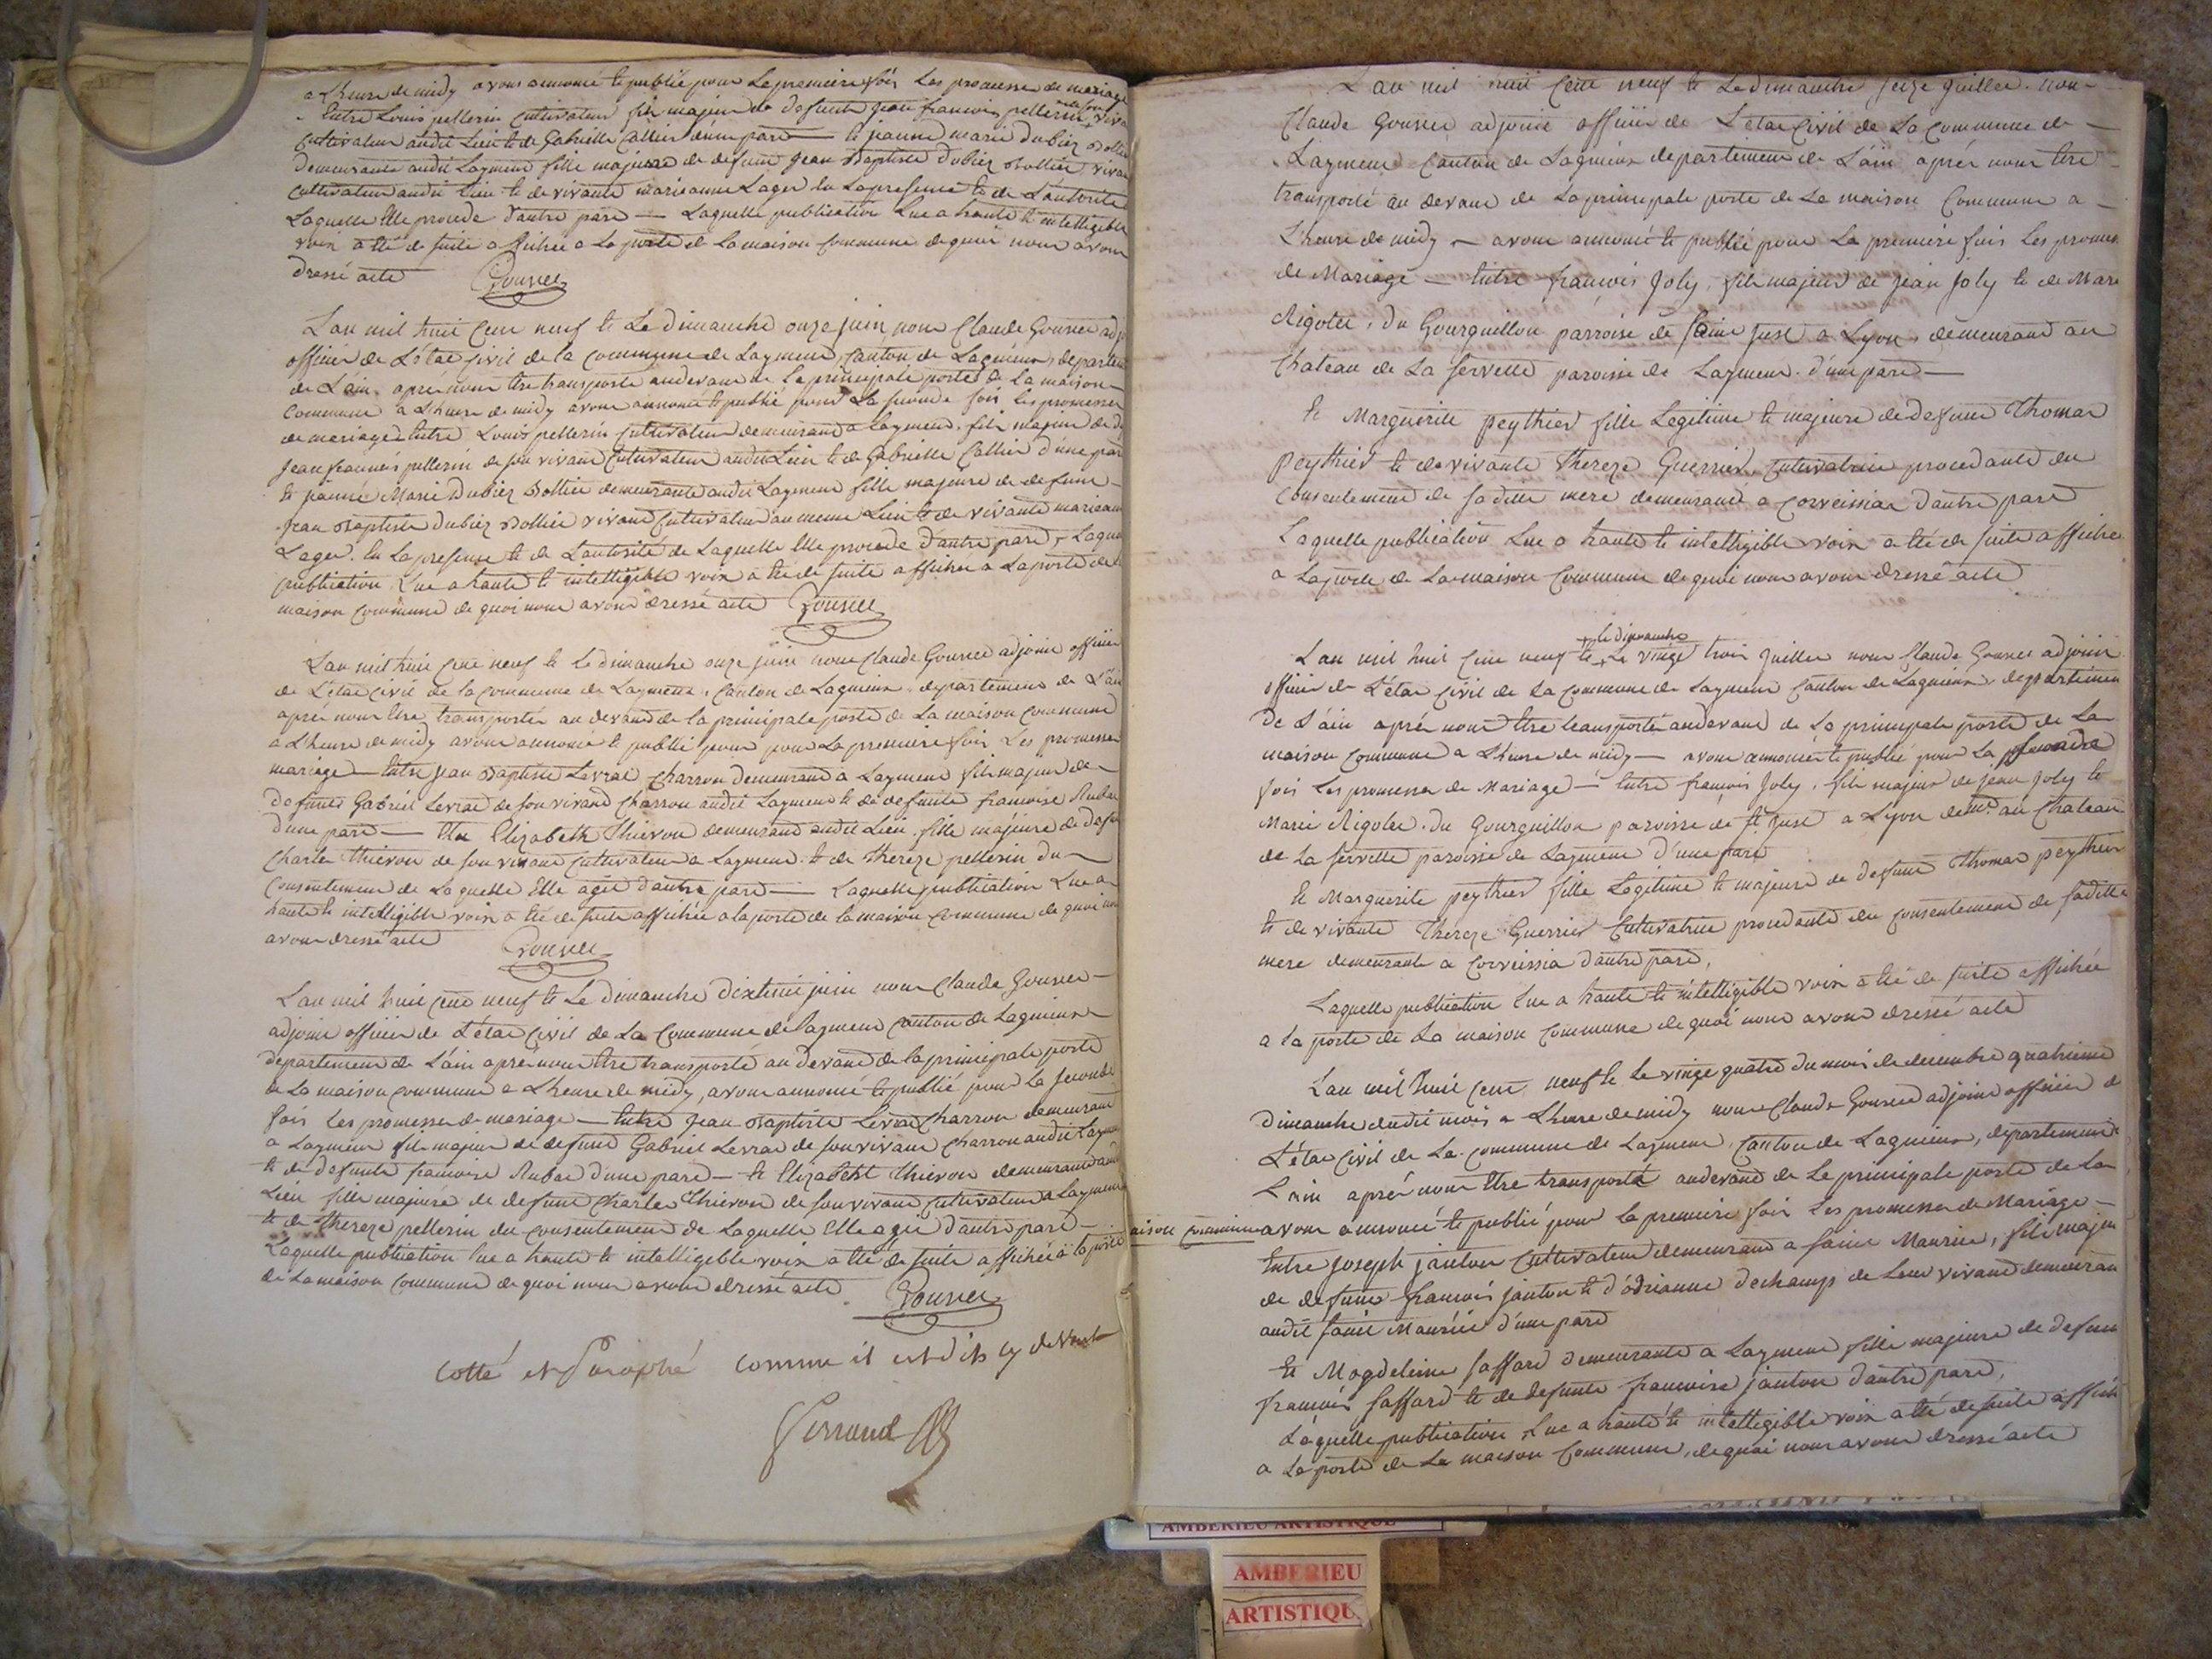 a L'heure de midy avons annoncé te publié pour La premiere fois Les promesse de mariage
Entre Louis pellerin Cultivateur fils majeur de defunte jean francois pellerin
Cultivateur audit Lieu te de Gabrielle Callier d'une part te jeanne marie dubiez Bollie
demeurante audit Laymend fille majeure de defunt jean Baptiste dubiez Bollier vivan
Cultivateur audit Lieu te de vivante marieanne Lager En La presence te de L'autorité
Laquelle Elle procede d'autre part — Laquelle publication Lue a haute te intelligible
voix a tté de suite affichée a La porte de La maison Commune de quoi nous avons
dressé acte Gousset
L'an mil huit Cent neuf te Le dimanche onze juin nous Claude Gousset adj
officier de L'état Civil de la Commune de Laymend, Canton de Lagnieux, departem
de L'ain après nous ttre transporté audevant de La principale porte de La maison
Commune a L'heure de midy avons annoncé te publié pour La seconde fois les promesses
de mariage Entre Louis pellerin Cultivateur demeurand a Laymend, fils majeur de d
Jean francois pellerin de son vivand Cultivateur audit Lieu te de Gabrielle Callier d'une par
te jeanne Marie Dubiez Bollier demeurante audit Laymend fille majeure de defunt
jean Baptiste dubiez Bollier vivand Cultivateur au meme Lieu te de vivante marieann
Lager. En La presence te de L'autorité de Laquelle Elle procede d'autre part, Laque
publication Lue a haute te intelligible voix a tte de suite affichée a La porte de
maison Commune de quoi nous avons dressé acte Gousset
L'an mil huit Cent neuf te le dimanche onze juin nous Claude Gousset adjoint officier
de L'état Civil de la Commune de Laymend, Canton de Lagnieux departement de L'ain
après nous ttre transporté au devand de La principale porte de La maison Commune
a L'heure de midy avons annoncé te publié pour pour La premiere fois Les promesse
mariage Entre jean Baptiste Levrat Charron demeurand a Laymend fils majeur de
defunt Gabriel Levrat de son vivand Charron audit Laymend te de defunte francoise Rubat
d'une part — Elizabeth Thievon demeurand audit Lieu, fille majeure de defun
Charles Thievon de son vivand Cultivateur a Laymend te de Thereze pellerin du
Consentement de Laquelle Elle agit d'autre part — Laquelle publication Lue a
haute te intelligible voix a tté de suite affichée a la porte de la maison Commune de quoi nous
avons dressé acte Gousset
L'an mil huit Cent neuf te Le dimanche dixhuit juin nous Claude Gousset
adjoint officier de L'état Civil de La Commune de Laymend Canton de Lagnieux
departement de L'ain après nous ttre transporté au devand de la principale porte
de La maison Commune a L'heure de midy, avons annoncé te publié pour La seconde
fois Les promesses de mariage — Entre Jean Baptiste Levrat Charron demeurant
a Laymend fils majeur de defunt Gabriel Levrat de son vivant Charron audit Laymen
te de defunte francoise Rubat d'une part — te Elizabeht Thievon demeurand audi
Lieu fille majeure de defunt Charles Thievon de son vivant Cultivateur a Laymend
te de Thereze pellerin du Consentement de Laquelle Elle agit d'autre part
Laquelle publication Lue a haute te intelligible voix a tté de suite affichée a La porte
de La maison Commune de quoi nous avons dressé acte. Gousset
Cotté et Paraphé comme il est dit cy devant
Ferrand
L'an mil huit Cent neuf te Le dimanche seize juillet. nous
Claude Gousset adjoint officier de L'état Civil de La Commune de
Laymend Canton de Lagnieux departement de L'ain après nous ttre
transporté au devant de La principale porte de La maison Commune a
L'heure de midy — avons annoncé te publié pour La premiere fois Les promes
de Mariage — Entre françois Joly, fils majeur de jean Joly te de Mari
Rigolet, du Gourguillon parroise de saint just a Lyon, demeurand au
Chateau de La servette paroisse de Laymend. d'une part —
te Marguerite peythier fille Legitime te majeure de defunt Thomas
peythier te de vivante Thereze Guerrier, Cultivatrice procedante du
Consentement de sa ditte mere demeurand a Corveissiat d'autre part
Laquelle publication Lue a haute te intelligible voix a tté de suite affichée
a La porte de La maison Commune de quoi nous avons dressé acte
+ le dimanche
L'an mil huit Cent neuf te + Le vingt trois juillet nous Claude Gousset adjoint
officier de L'état Civil de La Commune de Laymend Canton de Lagnieux departemen
de L'ain après nous ttre transporté audevand de La principale porte de La
maison Commune a L'heure de midy — avons annoncé te publié pour La seconde
fois Les promesse de Mariage — Entre françois Joly, fils majeur de jean Joly te
Marie Rigolet. du Gourguillon paroisse de St just a Lyon demt. au Chateau
de La servette paroisse de Laymend d'une part
te Marguerite peythier fille Legitime te majeure de defunt Thomas peythier
te de vivante Thereze Guerrier Cultivatrice procedante du Consentement de saditte
mere demeurante a Corveissia d'autre part,
Laquelle publication Lue a haute te intelligible voix a tté de suite affichée
a La porte de La maison Commune de quoi nous avons dressé acte
L'an mil huit Cent neuf te Le vingt quatre du mois de decembre quatrieme
dimanche dudit mois a L'heure de midy nous Claude Gousset adjoint officier d
L'état Civil de La Commune de Laymend, Canton de Lagnieux, departement
L'ain après nous ttre transporté audevand de La principale porte de La
aison Commune avons annoncé te publié pour La premiere fois Les promesses de Mariage
Entre joseph janton Cultivateur demeurand a saint Maurice, fils majeu
de defunt françois janton te d'odrianne dechamps de Leur vivand demeuran
audit saint Maurice d'une part
te Magdeleine saffard demeurante a Laymend fille majeure de defun
françois saffard te de defunte francoise janton d'autre part,
Laquelle publication Lue a haute te intelligible voix a tté de suite affiché
a La porte de La maison Commune, de quoi nous avons dressé acte
AMBERIEU ARTISTIQUE
AMBERIEU
ARTISTIQU